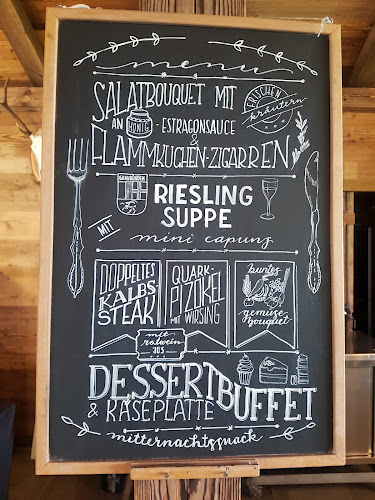 menu
SALATBOUQUET MIT
FRISCHEN
kräutern
AN HONIG - ESTRAGONSAUCE
&
FLAMMKUCHEN-ZIGARREN
GRAUBÜNDEN
RIESLING
SUPPE
MIT
mini capuns
DOPPELTES
KALBS-
STEAK
QUARK-
PIZOKEL
MIT WIRSING
buntes
gemüse
bouquet
mit
rotwein
JUS
DESSERTBUFFET
& KÄSEPLATTE
mitternachtssnack